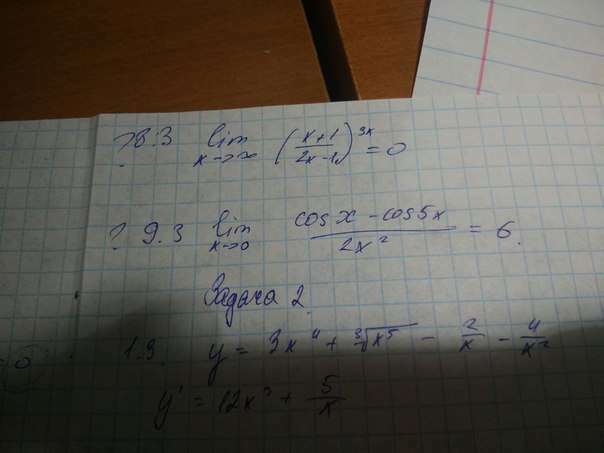 ? 8.3 lim x→∞ (x+1 / 2x-1)^3x = 0
? 9.3 lim x→0 cos x - cos 5x / 2x² = 6.
Задача 2.
1.3. y = 3x⁴ + ∛x⁵ - 2/x - 4/x²
y' = 12x³ + 5/x